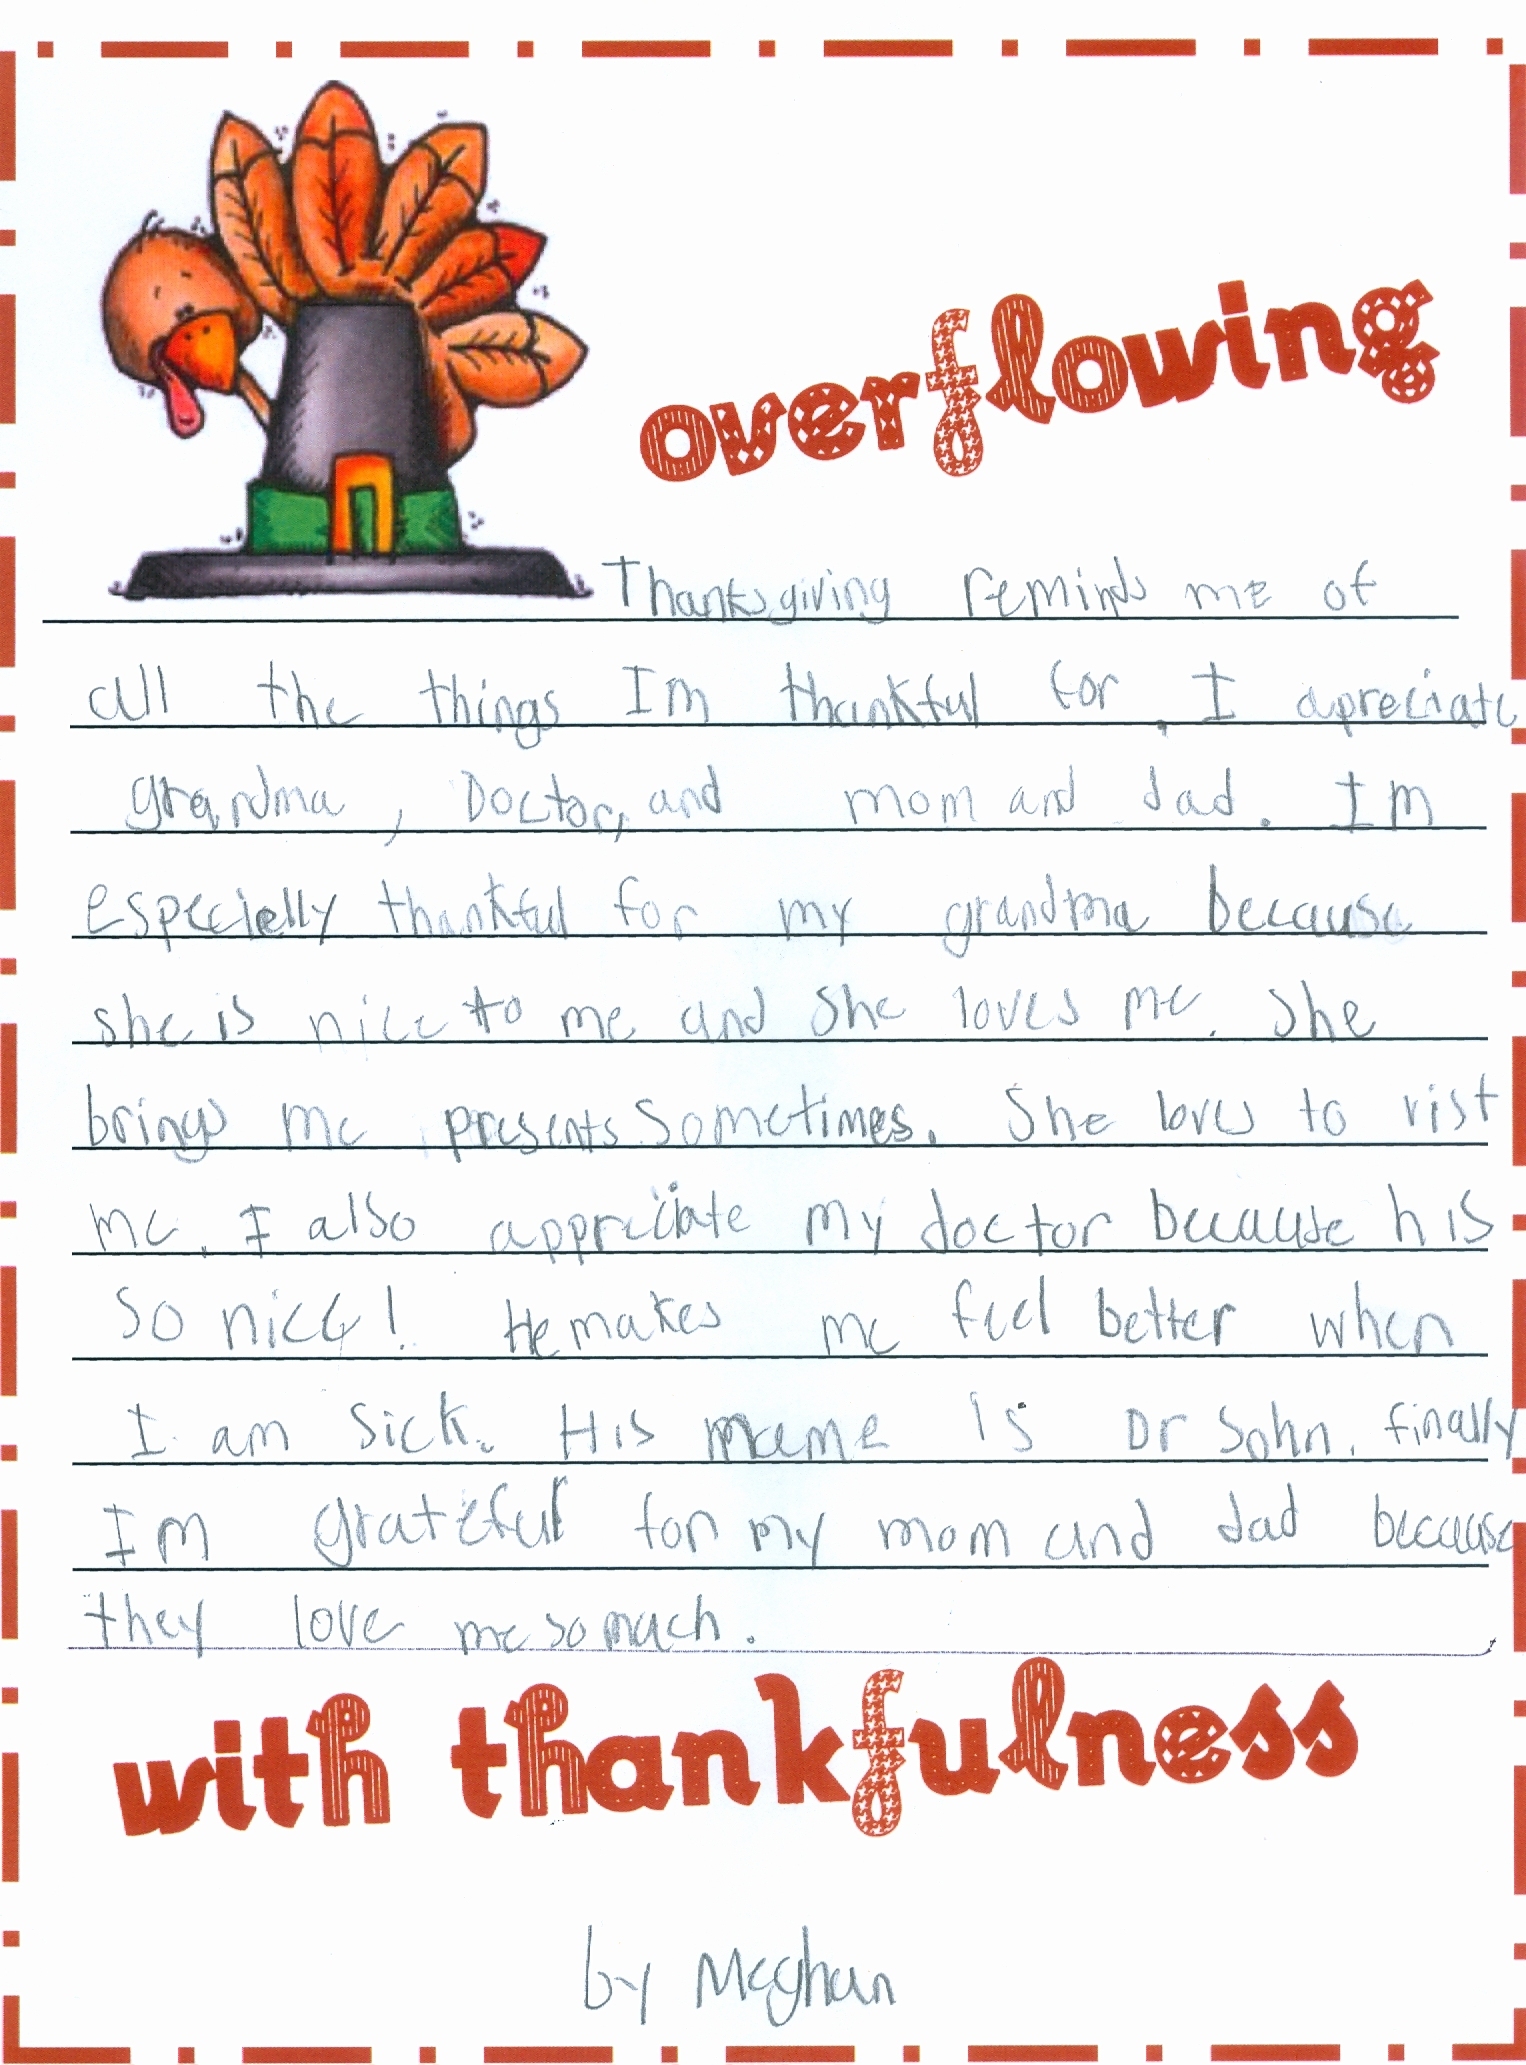 overflowing
Thanksgiving reminds me of
all the things Im thankful for. I apreciate
grandma, Doctor, and mom and dad. Im
especielly thankful for my grandma because
she is nice to me and she loves me. She
brings me presents sometimes. She loves to vist
me. I also appreciate my doctor because his
so nice! He makes me feel better when
I am sick. His mame is Dr Sohn. finally
Im grateful for my mom and dad because
they love me so mach.
with thankfulness
by Meghan